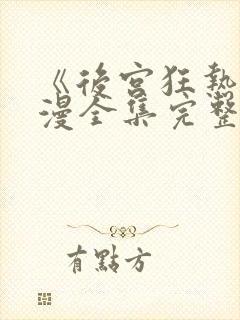 《後宮狂熱
漫全集完整
有點方